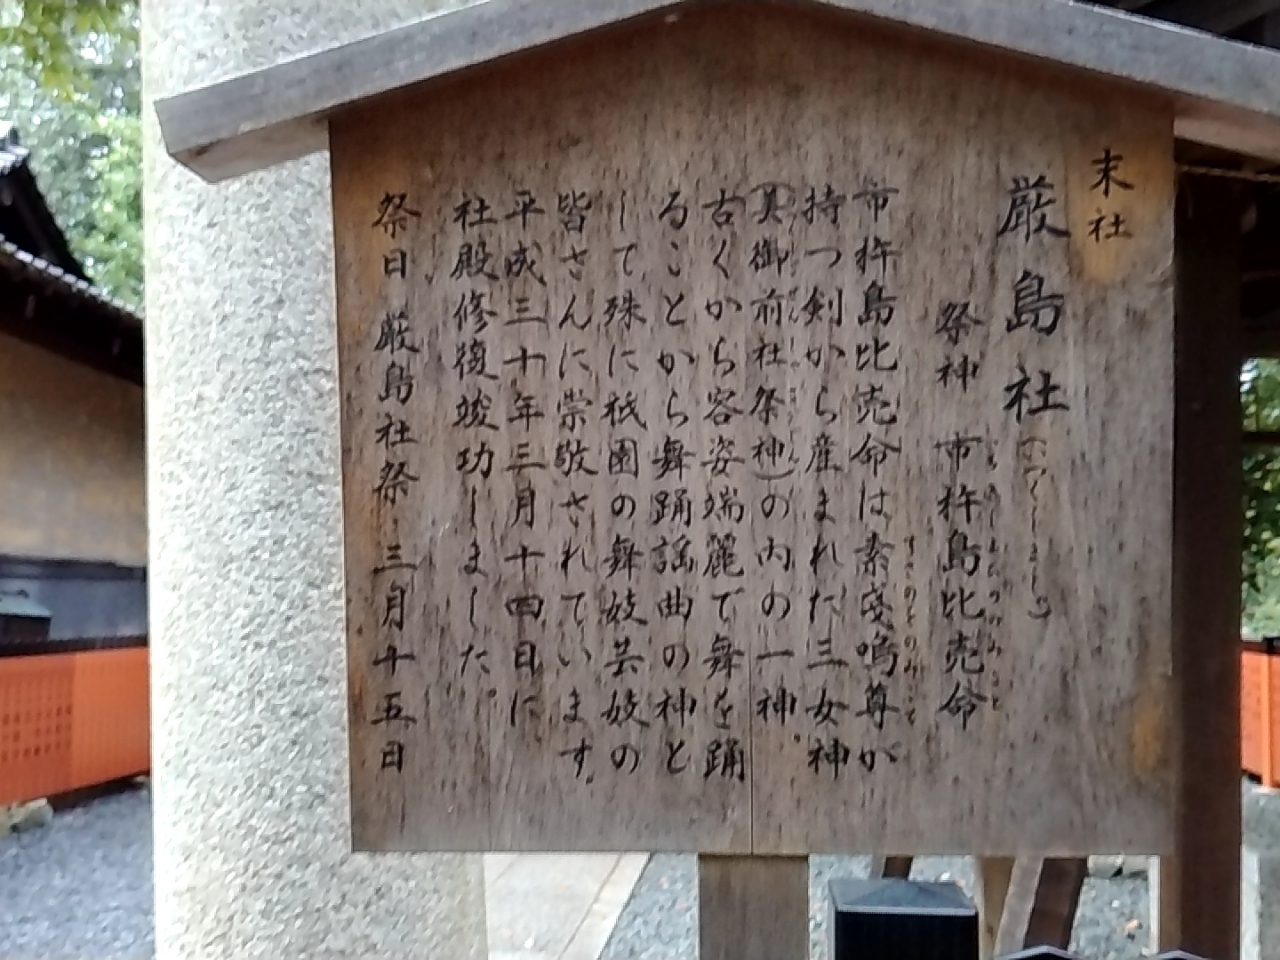 末社
厳島社(いつくしましゃ)
祭神 市杵島比売命
市杵島比売命は素戔嗚尊が
持つ剣から産まれた三女神
(美御前社祭神)の内の一神。
古くから容姿端麗で舞を踊
ることから舞踊謡曲の神と
して、殊に祇園の舞妓芸妓の
皆さんに崇敬されています。
平成三十年三月十四日に
社殿修復竣功しました。
祭日 厳島社祭・三月十五日